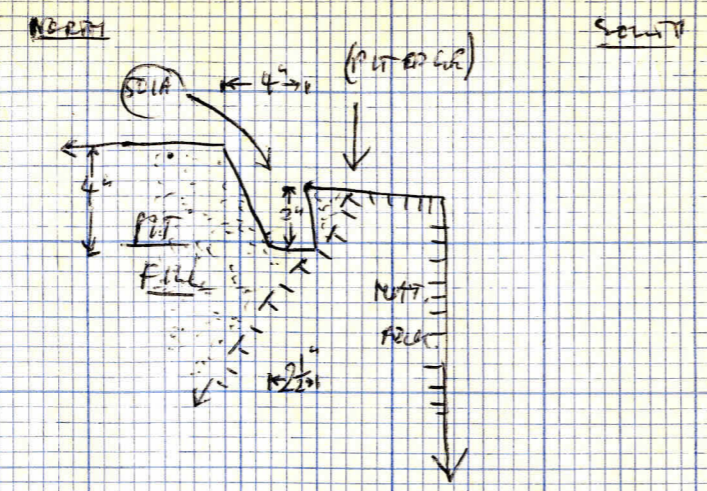 NORTH
SOUTH
501A
4"
(PIT EDGE)
4"
2"
PIT
FILL
NAT.
ROCK.
2½"